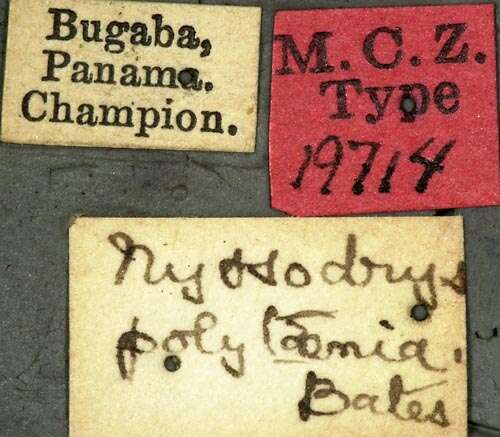 Bugaba,
Panama.
Champion.
M. C. Z.
Type
19714
Nyssodrys
polytænia.
Bates